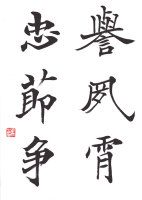 譽夙霄
忠節争